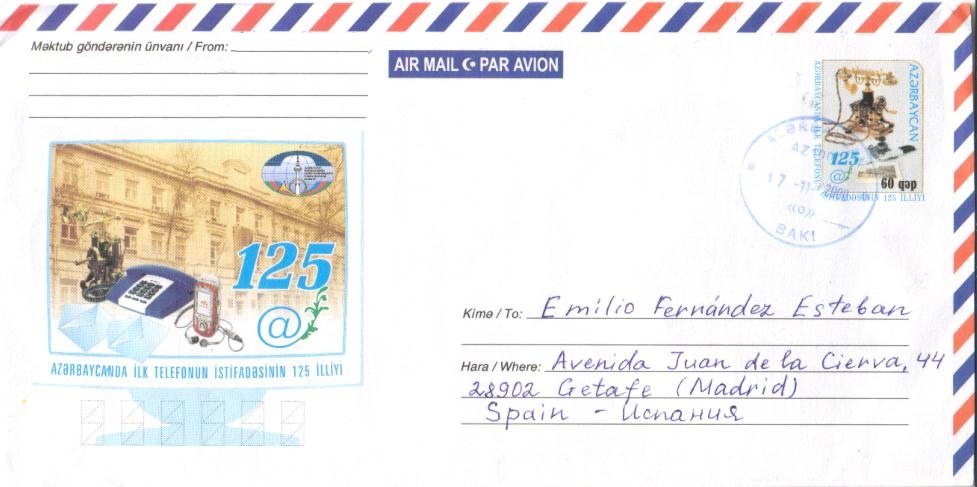 Məktub göndərənin ünvanı / From:
AIR MAIL PAR AVION
AZƏRBAYCANDA İLK TELEFONUN
İSTİFADƏSİNİN 125 İLLİYİ
AZƏRBAYCAN
125
@
60 qəp
17-11-
«O»
BAKI
125
@
AZƏRBAYCANDA İLK TELEFONUN İSTİFADƏSİNİN 125 İLLİYİ
Kimə / To: Emilio Fernández Esteban
Hara / Where: Avenida Juan de la Cierva, 44
28902 Getafe (Madrid)
Spain - Испания